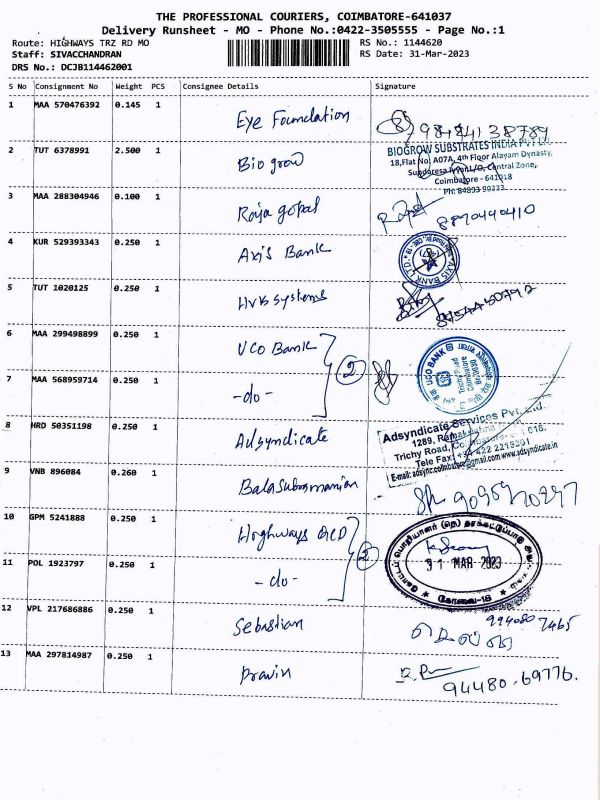 THE PROFESSIONAL COURIERS, COIMBATORE-641037
Delivery Runsheet - MO - Phone No.:0422-3505555 - Page No.:1
Route: HIGHWAYS TRZ RD MO
RS No.: 1144620
Staff: SIVACCHANDRAN
RS Date: 31-Mar-2023
DRS No.: DCJB114462001
S No Consignment No Weight PCS Consignee Details Signature
1 MAA 570476392 0.145 1 Eye Foundation
2 TUT 6378991 2.500 1 Bio grow
BIOGROW SUBSTRATES INDIA PVT LTD.
18,Flat No: A07A, 4th Floor Alayam Dynasty,
Central Zone,
Coimbatore - 641018
Ph: 84893 90223
3 MAA 288304946 0.100 1 Raja gopal 8870440410
4 KUR 529393343 0.250 1 Axis Bank
AXIS BANK LTD.
5 TUT 1020125 0.250 1 HVB systems
6 MAA 299498899 0.250 1 UCO Bank
2
UCO BANK
7 MAA 568959714 0.250 1 -do-
8 HRD 50351198 0.250 1 Adsyndicate
Adsyndicate Services Pvt. Ltd.
1289,
Trichy Road,
Tele Fax: +91 422 2215301
9 VNB 896084 0.260 1 Balasubramanian
10 GPM 5241888 0.250 1 Highways
31 MAR 2023
கோவை-18
11 POL 1923797 0.250 1 -do-
12 VPL 217686886 0.250 1 Sebastian
13 MAA 297814987 0.250 1 Pravin
94480.69776.